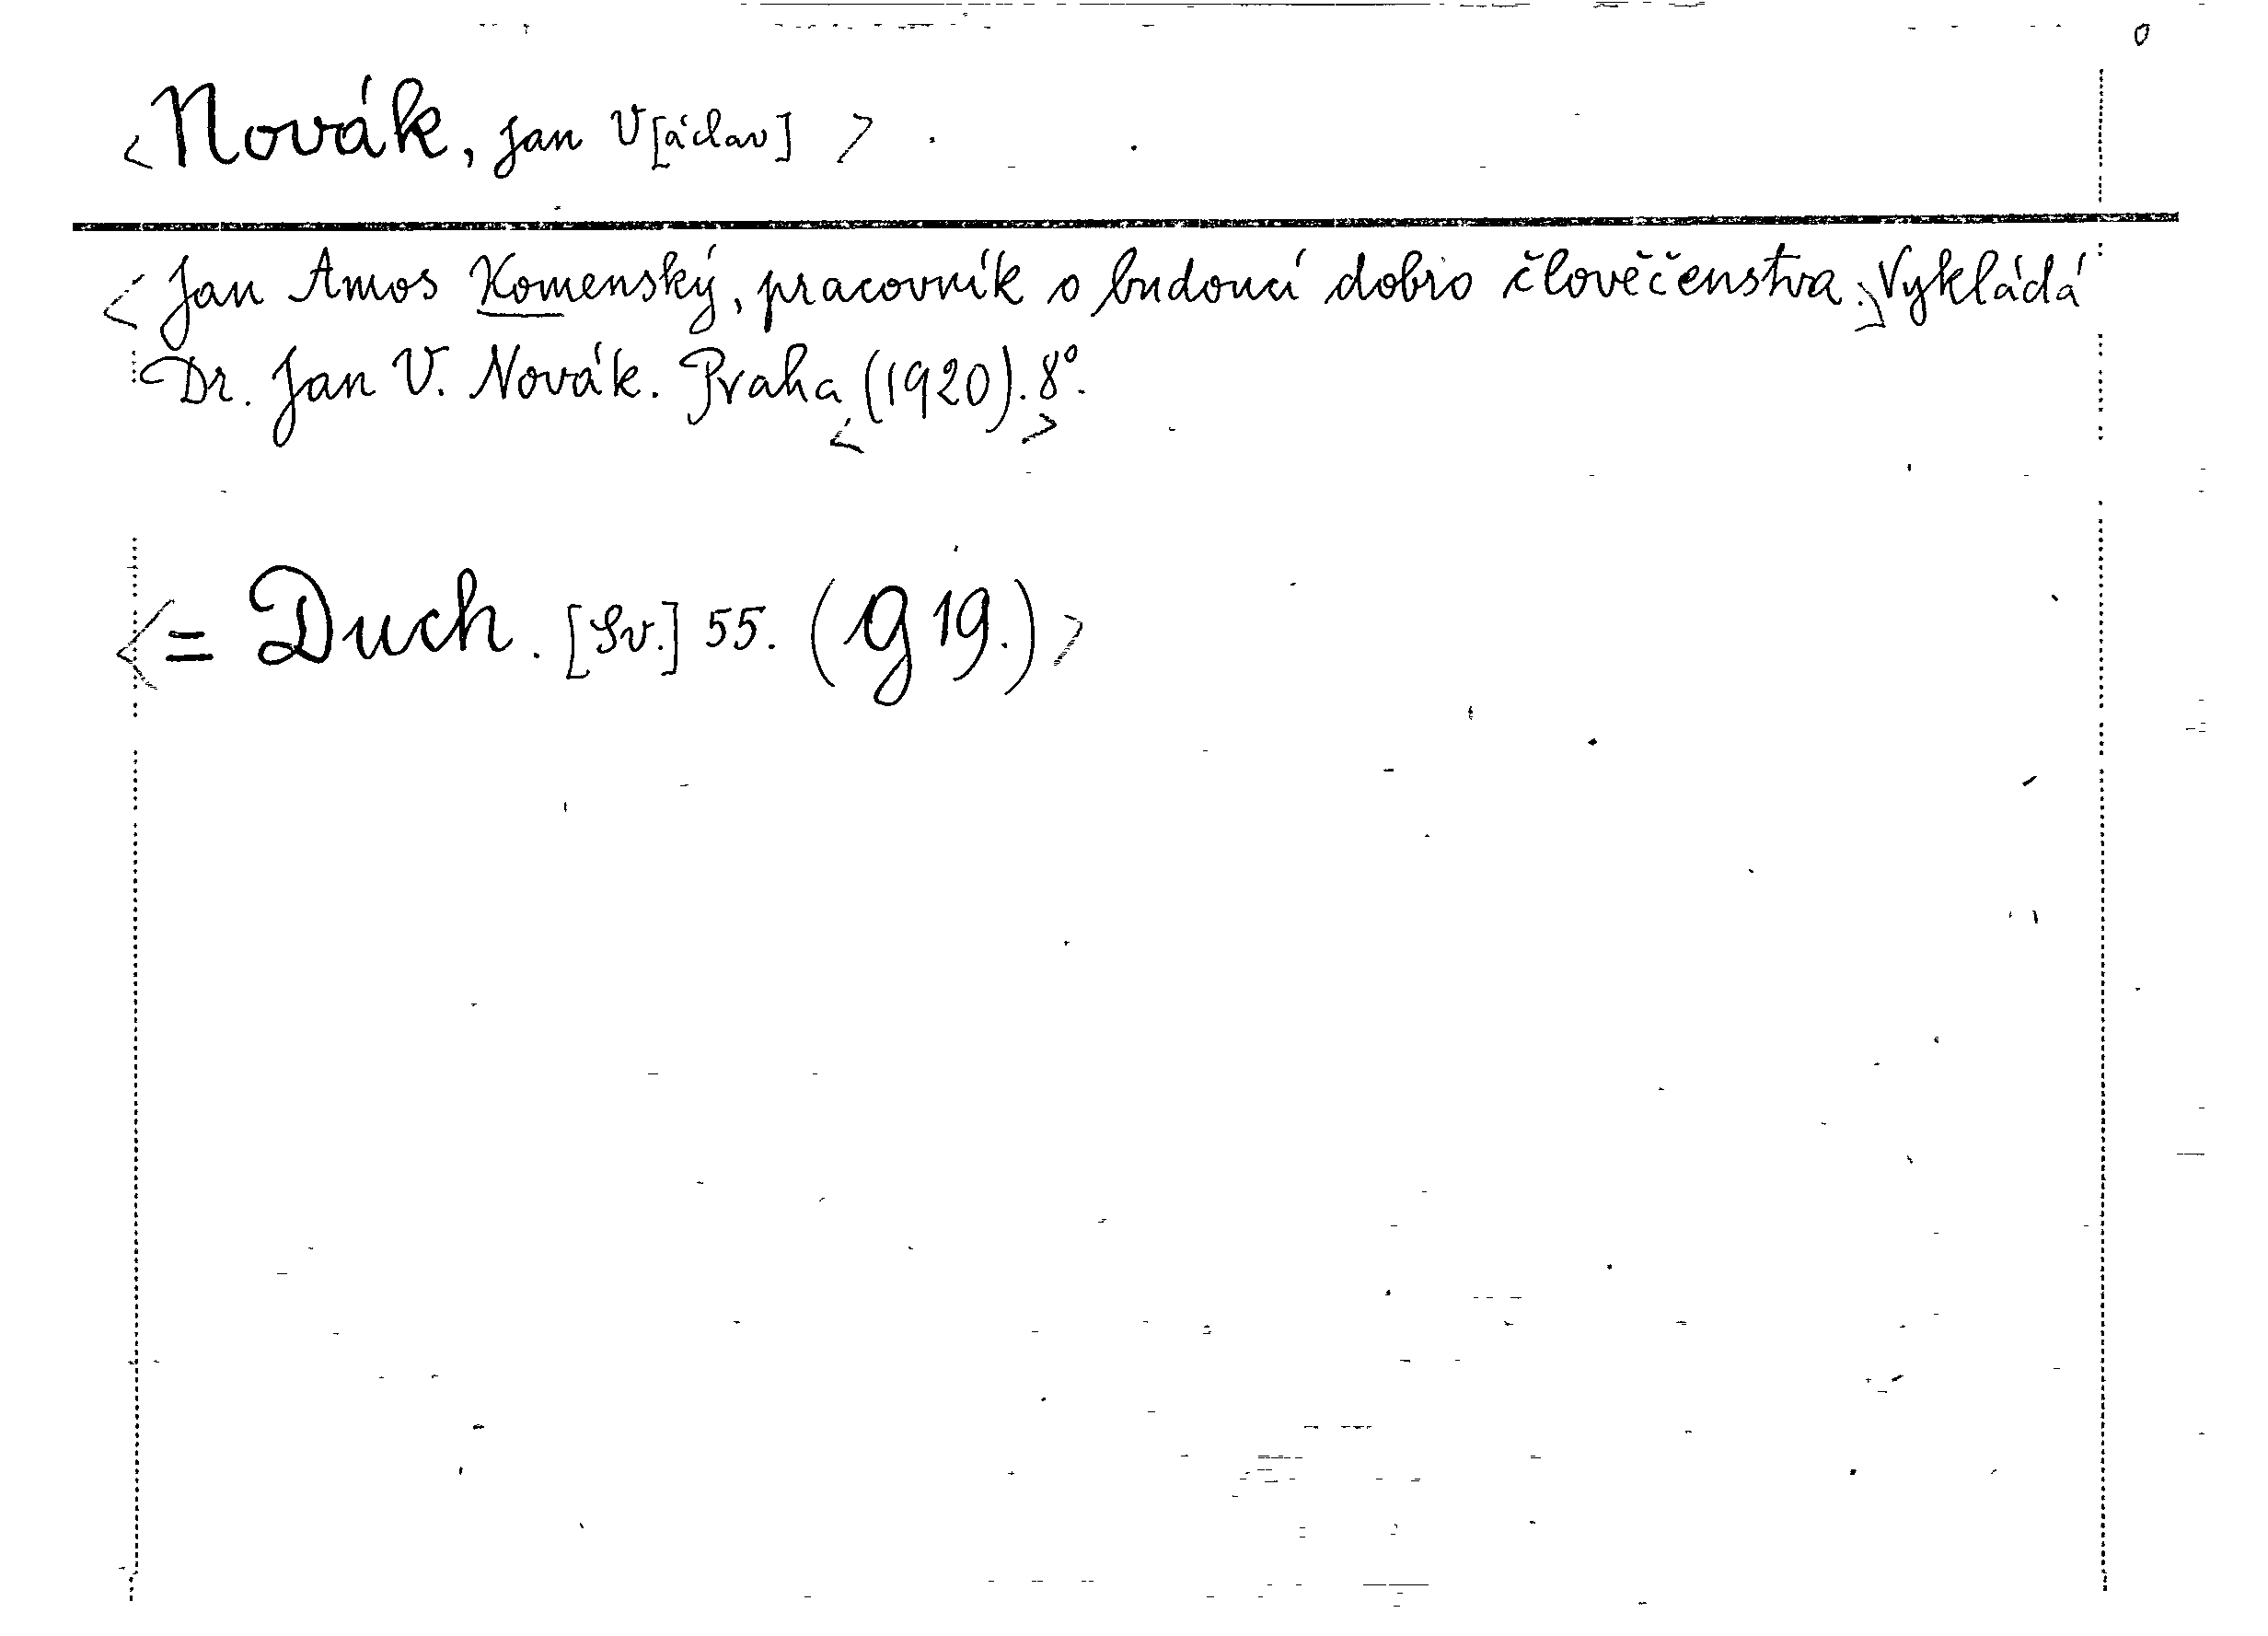 <Novák, Jan V[áclav]>
<Jan Amos Komenský, pracovník o budoucí dobro člověčenstva.> Vykládá
Dr. Jan V. Novák. Praha <(1920). 8°.>
<= Duch. [Sv.] 55. (G 19.)>